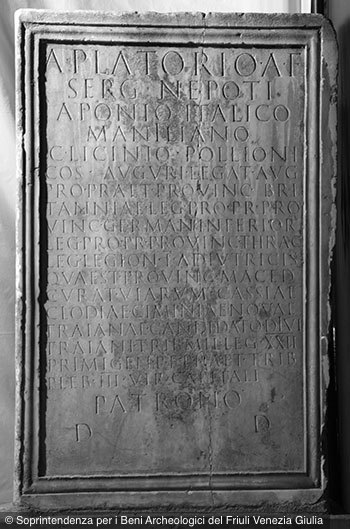 A·PLATORIO·A·F
SERG·NEPOTI·
APONIO·ITALICO
MANILIANO
C·LICINIO·POLLIONI
COS·AVGVRI·LEGAT·AVG
PRO·PRAET·PROVINC·BRI
TANNIAE·LEG·PRO·PR·PRO
VINC·GERMAN·INFERIOR
LEG·PRO·PR·PROVINC·THRAC
LEG·LEGION·I·ADIVTRICIS
QVAEST·PROVINC·MACED
CVRAT·VIARVM·CASSIAE
CLODIAE·CIMINIAE·NOVAE
TRAIANAE·CANDIDATO·DIVI
TRAIANI·TRIB·MIL·LEG·XXII
PRIMIGEN·P·F·PRAET·TRIB
PLEB·III·VIR·CAPITALI
PATRONO
D D
© Soprintendenza per i Beni Archeologici del Friuli Venezia Giulia